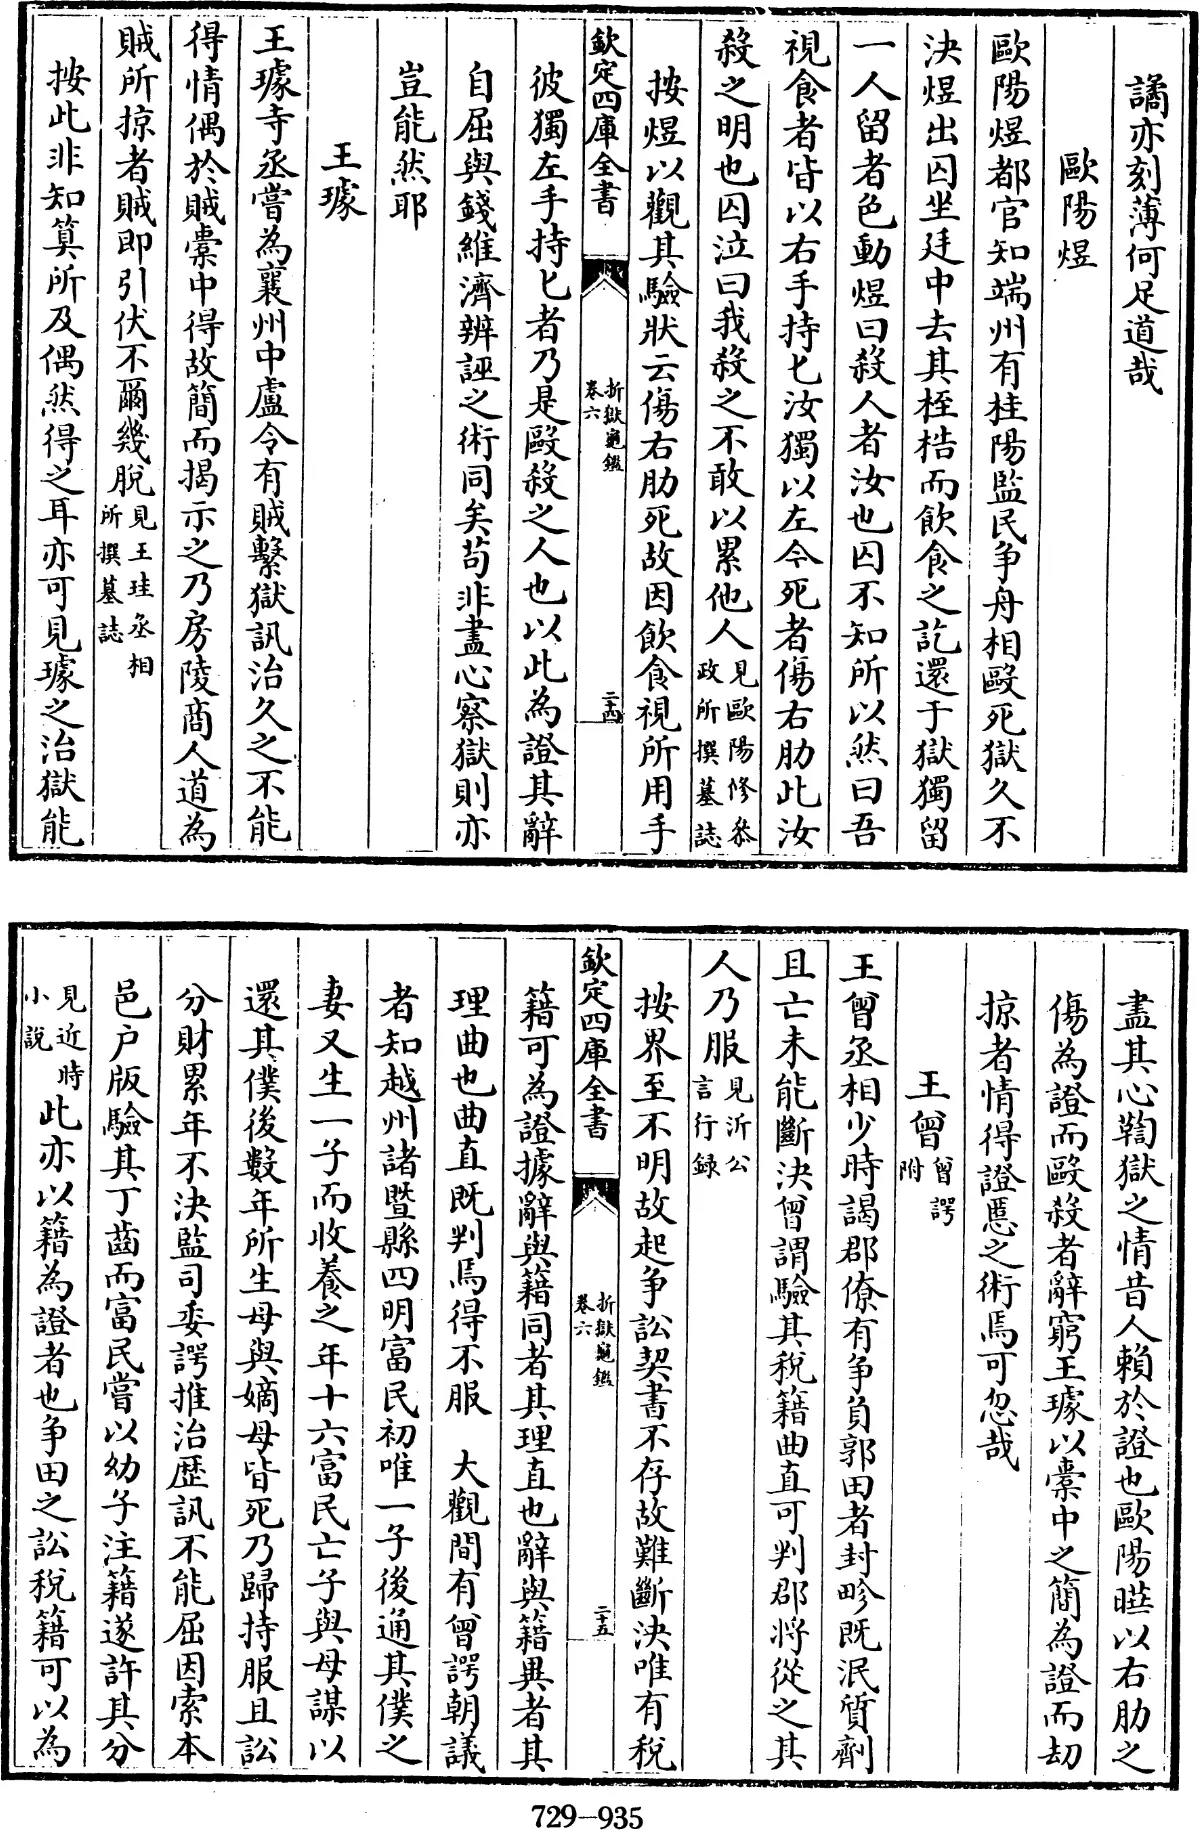 譎亦刻薄何足道哉
歐陽煜
歐陽煜都官知端州有桂陽監民爭舟相毆死獄久不
決煜出囚坐廷中去其桎梏而飲食之訖還于獄獨留
一人留者色動煜曰殺人者汝也囚不知所以然曰吾
視食者皆以右手持匕汝獨以左今死者傷右肋此汝
殺之明也囚泣曰我殺之不敢以累他人見歐陽修叅
政所撰墓誌
按煜以觀其驗狀云傷右肋死故因飲食視所用手
欽定四庫全書
折獄龜鑑
卷六
二十四
彼獨左手持匕者乃是毆殺之人也以此為證其辭
自屈與錢維濟辨誣之術同矣苟非盡心察獄則亦
豈能然耶
王璩
王璩寺丞嘗為襄州中盧令有賊繫獄訊治久之不能
得情偶於賊橐中得故簡而揭示之乃房陵商人道為
賊所掠者賊即引伏不爾幾脫見王珪丞相
所撰墓誌
按此非知算所及偶然得之耳亦可見璩之治獄能
盡其心鞫獄之情昔人賴於證也歐陽曄以右肋之
傷為證而毆殺者辭窮王璩以橐中之簡為證而劫
掠者情得證慝之術焉可忽哉
王曾曾諤
附
王曾丞相少時謁郡僚有爭負郭田者封畛既泯質劑
且亡未能斷決曾謂驗其稅籍曲直可判郡將從之其
人乃服見沂公
言行録
按界至不明故起爭訟契書不存故難斷決唯有稅
欽定四庫全書
折獄龜鑑
卷六
二十五
籍可為證據辭與籍同者其理直也辭與籍異者其
理曲也曲直既判焉得不服　大觀間有曾諤朝議
者知越州諸曁縣四明富民初唯一子後通其僕之
妻又生一子而收養之年十六富民亡子與母謀以
還其僕後數年所生母與嫡母皆死乃歸持服且訟
分財累年不決監司委諤推治歷訊不能屈因索本
邑戶版驗其丁齒而富民嘗以幼子注籍遂許其分
見近時
小說此亦以籍為證者也爭田之訟稅籍可以為
729-935